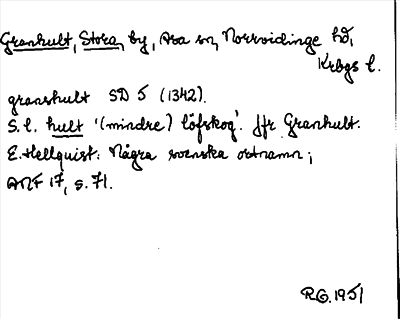 Grankult, Stora, by, Asa sn, Norrvidinge hd,
Krbgs l.
granshult SD 5 (1342).
S. l. hult '(mindre) löfskog'. Jfr Grankult.
E. Hellquist: Några svenska ortnamn;
ANF 17, s. 71.
R.G. 1951